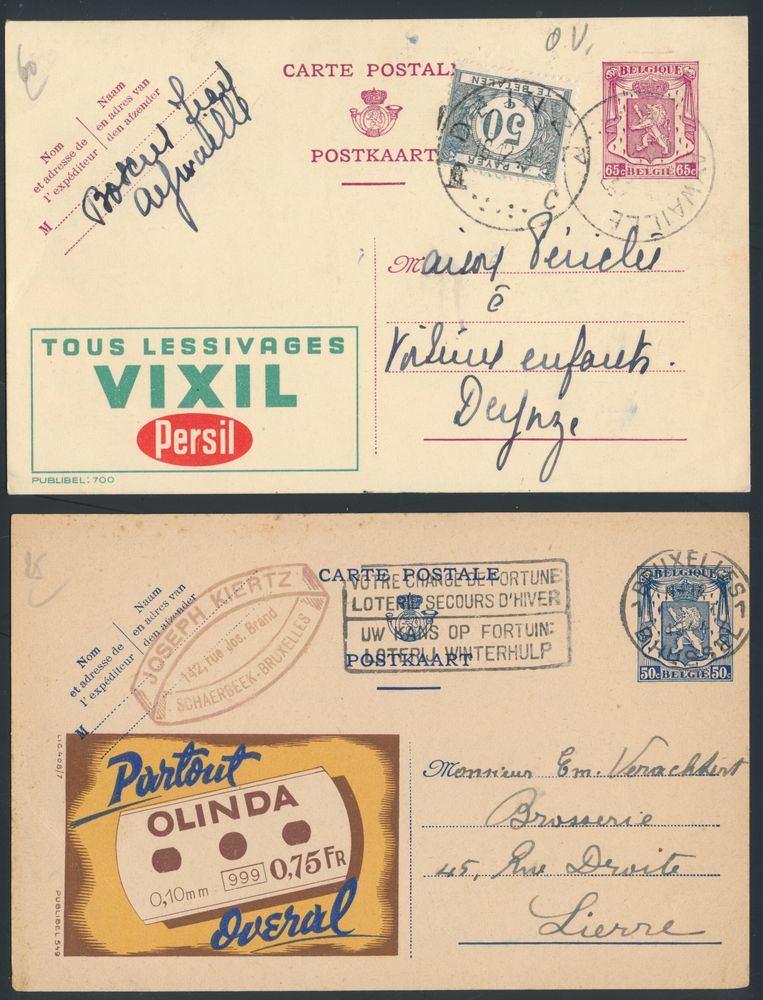 60
O.V.
CARTE POSTALE
POSTKAART
Nom
et adresse de
l'expéditeur
Naam
en adres van
den afzender
M
Aywaille
TE BETALEN
50
A PAYER
BELGIQUE
65c BELGIË 65c
AYWAILLE
Maison Périclès
Deynze
enfants.
TOUS LESSIVAGES
VIXIL
Persil
PUBLIBEL: 700
25
CARTE POSTALE
POSTKAART
Nom
et adresse de
l'expéditeur
Naam
en adres van
den afzender
M
JOSEPH KIERTZ
142, rue Jos. Brand
SCHAERBEEK-BRUXELLES
VOTRE CHANCE DE FORTUNE
LOTERIE SECOURS D'HIVER
UW KANS OP FORTUIN:
LOTERIJ WINTERHULP
BRUXELLES
BRUSSEL
BELGIQUE
50c BELGIË 50c
LIC. 408/7
Partout
OLINDA
0,10mm 999 0,75 FR
Overal
PUBLIBEL 549
Monsieur Em. Verachtert
Brosserie
45, Rue Droite
Lierre